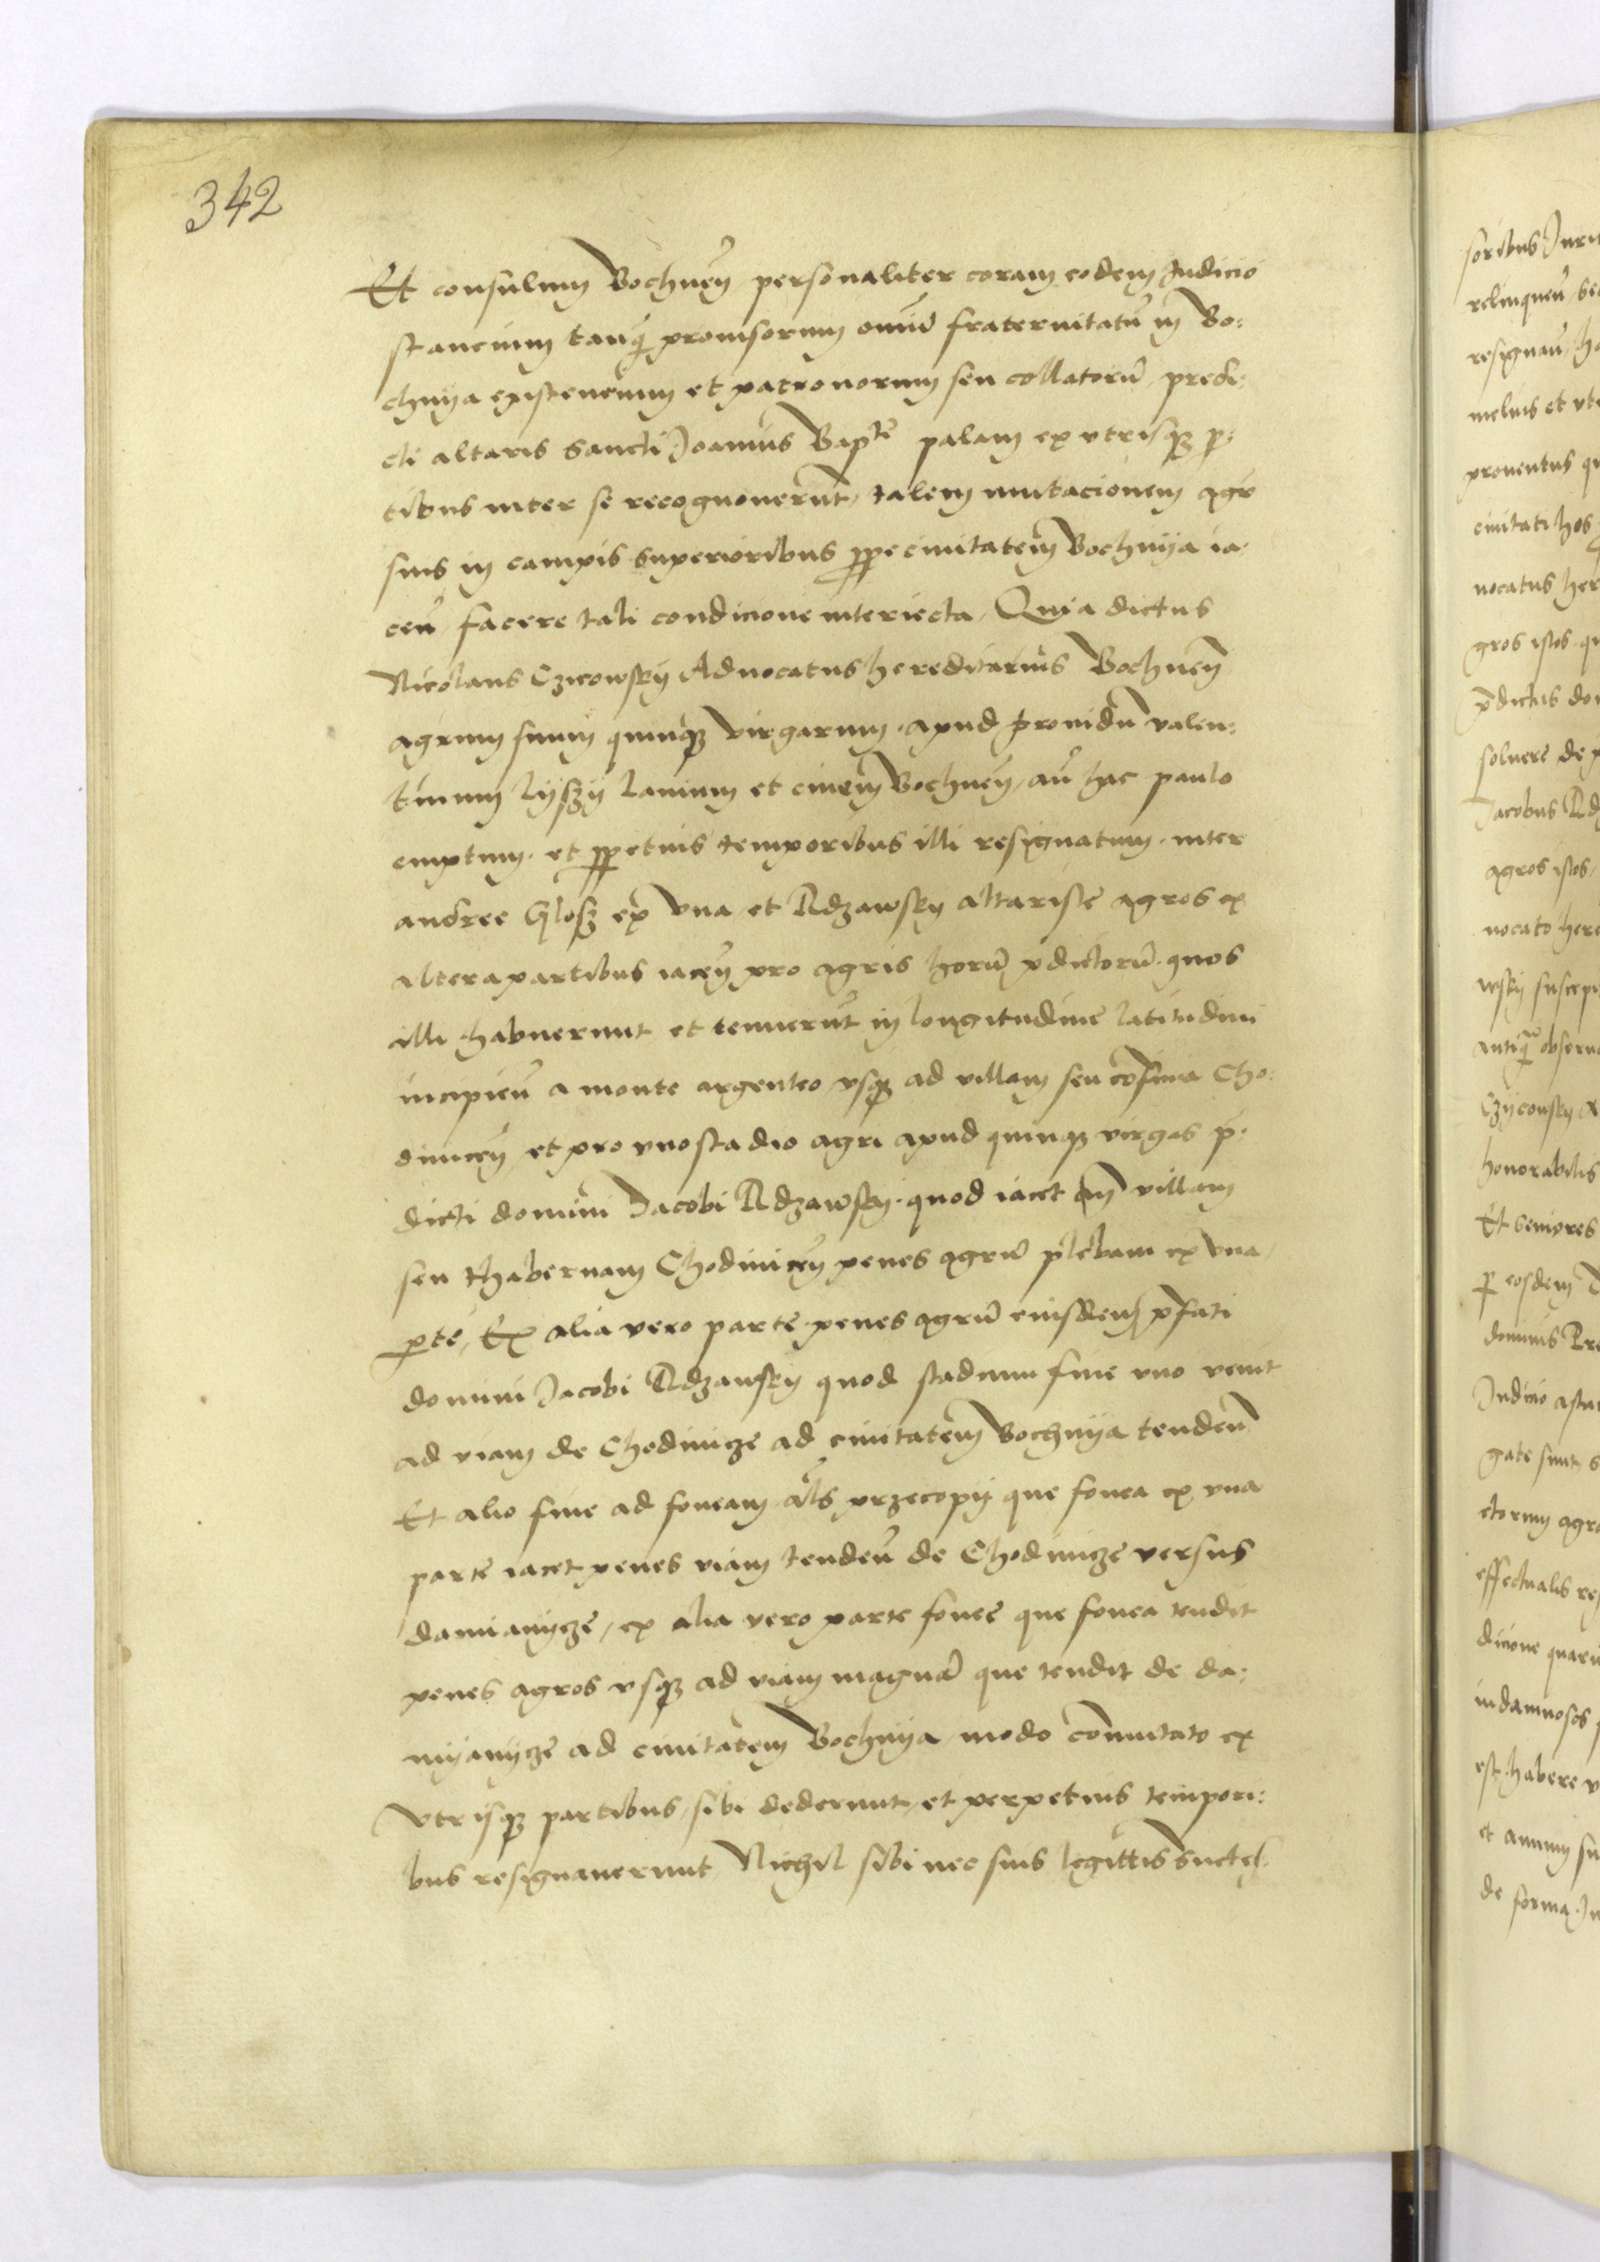 342
Et consulum Bochnen̄ personaliter coram eodem Iudicio
stancium tanq̄ꝫ prouisorum omniū fraternitatū in Bo:
chnya existencium et patronorum seu collatorū predi:
cti altaris Sancti Joannis Bapte palam ex vtrisqꝫ p̲:
tibus inter se recognouerūt, talem mutacionem agro
suis in campis superioribus p̲pe ciuitatem Bochnya ia:
cen̄ facere tali condicione interiecta, Quia dictus
Nicolaus Czicowsky Aduocatus hereditarius Bochnen̄
agrum suum quinqꝫ virgarum apud prouidū valen:
tinum lyszy lanium et ciuem Bochnen̄, an̄ hac paulo
emptum et p̲petuis temporibus illi resignatum inter
andree Glosz ex vna et Rdzawsky altariste agros ex
altera partibus iacen̄ pro agris horū p̄dictorū quos
illi habuerunt et tenuerūt in longitudine latitudini
incipien̄ a monte argenteo vsqꝫ ad villam seu cōfinia Cho:
dinicen̄ et pro vno stadio agri apud quinqꝫ virgas p̄:
dicti domini Jacobi Rdzawsky quod iacet villam
seu thabernam Chodinicen̄ penes agrū plebani ex vna
p̲te, Ex alia vero parte penes agrū eiusdem p̄fati
domini Jacobi Rdzawsky quod stadium fine vno venit
ad viam de Chodinicze ad ciuitatem Bochnya tenden̄
Et alio fine ad foueam al̄s przecopy que fouea ex vna
parte iacet penes viam tenden̄ de Chodinicze versus
damianycze, ex alia vero parte fouee que fouea tendit
penes agros vsqꝫ ad viam magnā que tendit de da:
myanycze ad ciuitatem Bochnya modo cōmutato ex
vtrisqꝫ partibus, sibi dederunt, et perpetuis tempori:
bus resignauerunt Nichil sibi nec suis legittis
soribus Iuris
relinquen̄
resignan̄
melius et vti
prouentus
ciuitati hos
uocatus
gros istos
p̄dictus
soluere de
Jacobus
agros istos
uocato
wsky suscepi
obserua
Czyconsky
honorabilis
Et seniores
p̲ eosdem
dominus
Iudicio
gate sunt
ctorum
effectualis
dicione
indamnosos
est habere
et
de forma